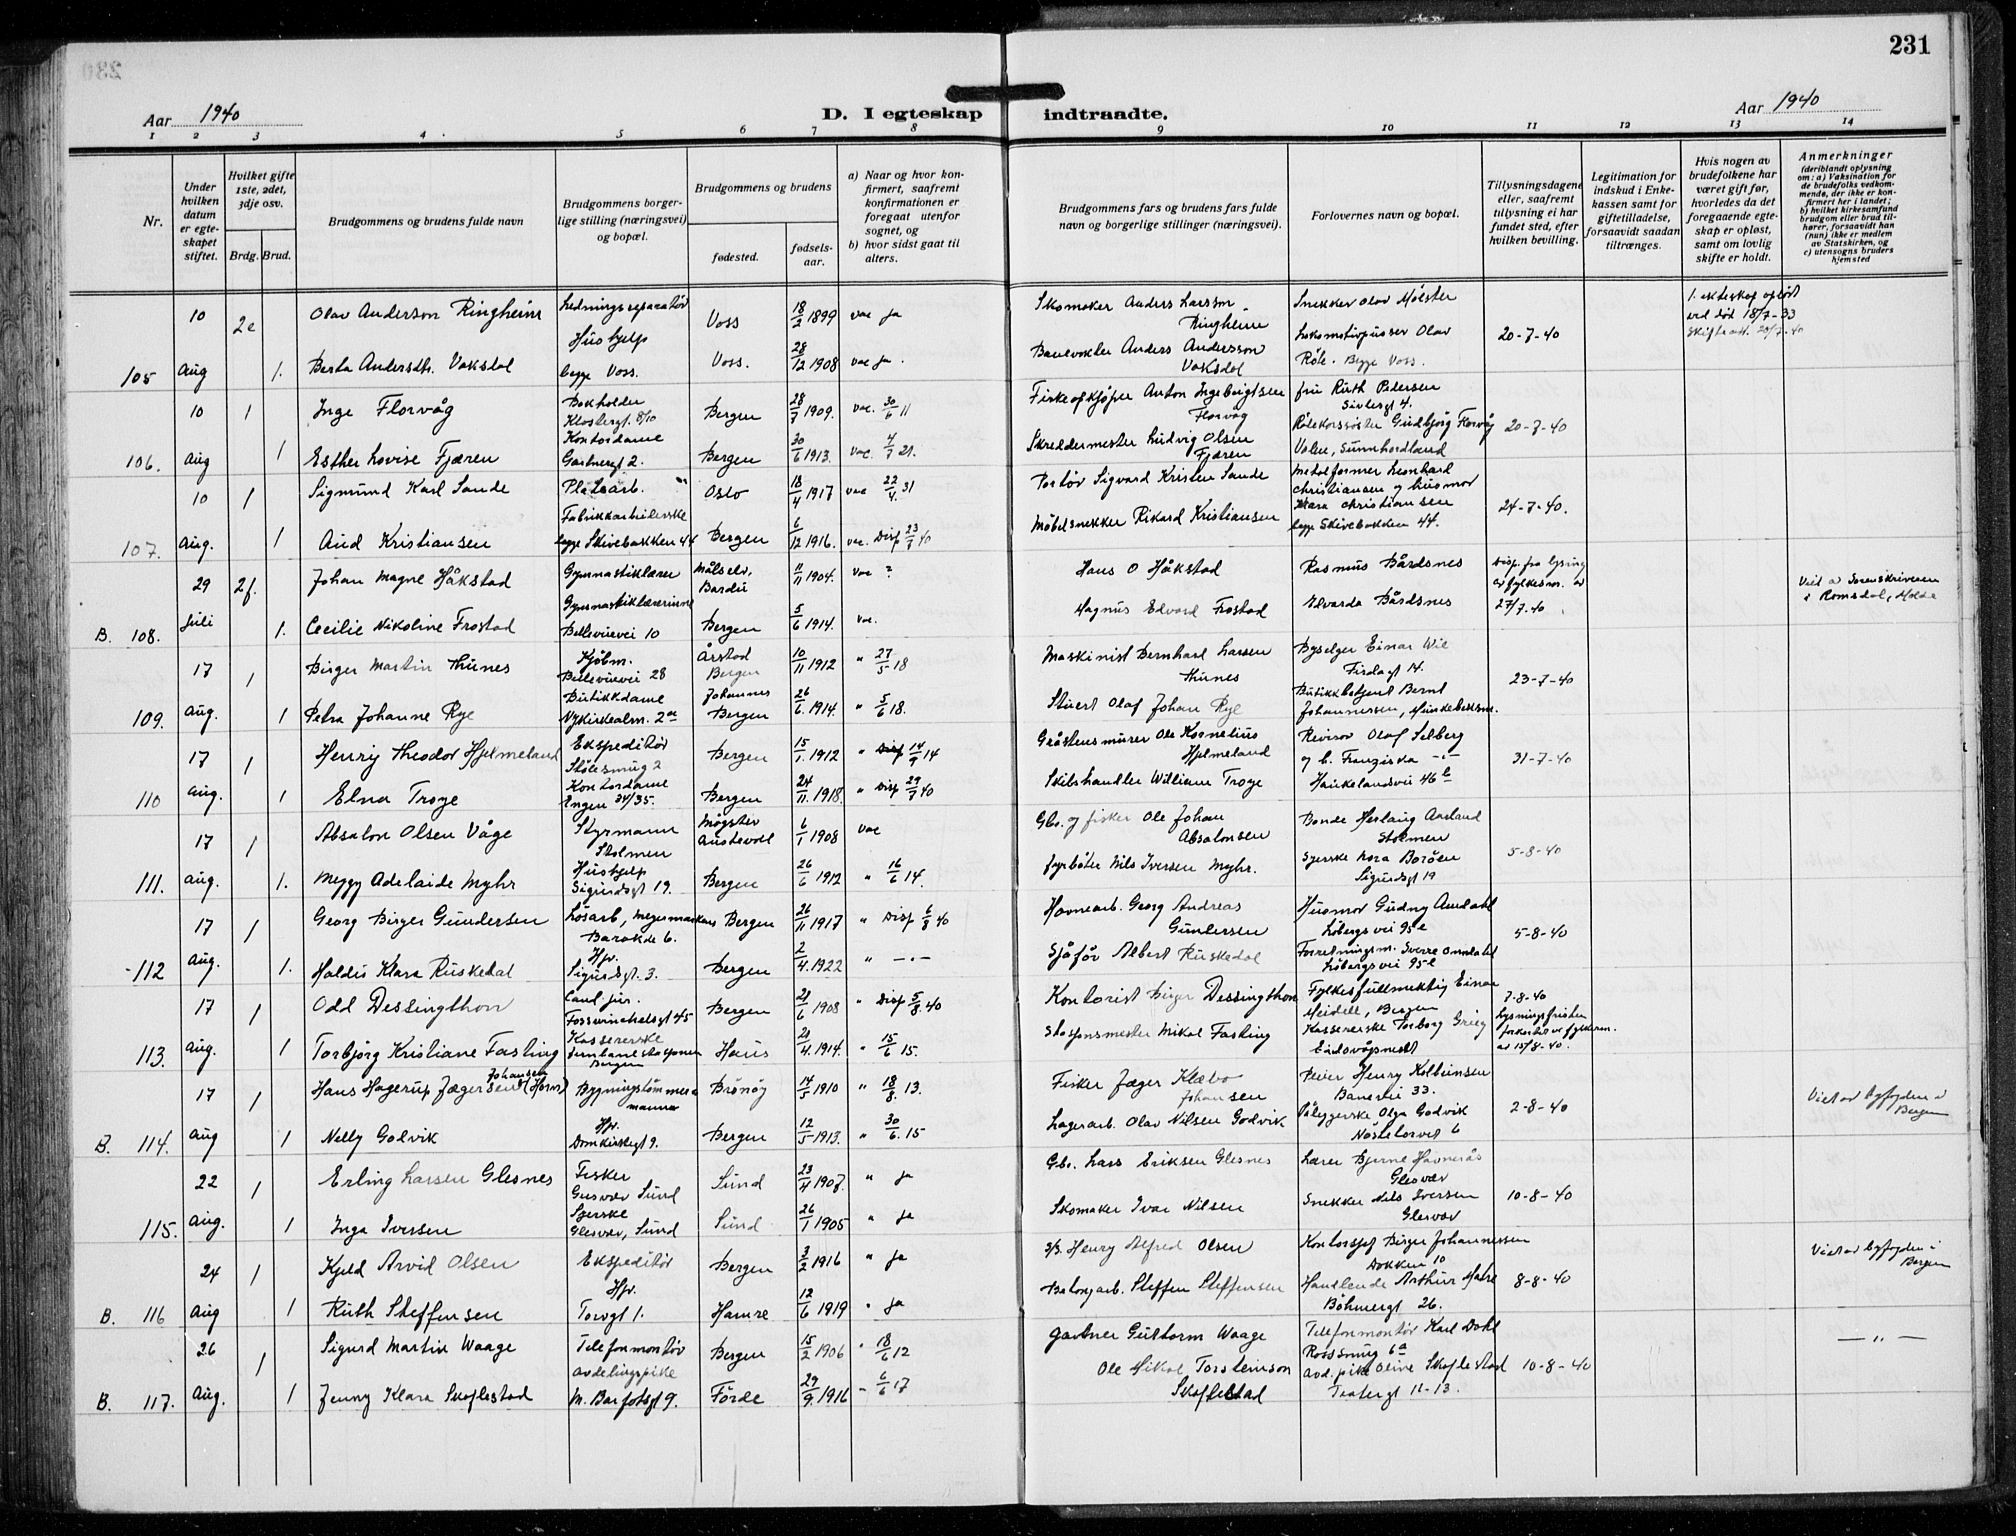 231
Aar 1940
D. I egteskap indtraadte.
Aar 1940
1 2 3 4 5 6 7 8 9 10 11 12 13 14
Nr.
Under hvilken datum er egteskapet stiftet.
Hvilket gifte 1ste, 2det, 3dje osv.
Brdg. Brud.
Brudgommens og brudens fulde navn
Brudgommens borgerlige stilling (næringsvei) og bopæl.
Brudgommens og brudens
fødested.
fødselsaar.
a) Naar og hvor konfirmert, saafremt konfirmationen er foregaat utenfor sognet, og
b) hvor sidst gaat til alters.
Brudgommens fars og brudens fars fulde navn og borgerlige stillinger (næringsvei).
Forlovernes navn og bopæl.
Tillysningsdagene eller, saafremt tillysning ei har fundet sted, efter hvilken bevilling.
Legitimation for indskud i Enkekassen samt for giftetilladelse, forsaavidt saadan tiltrænges.
Hvis nogen av brudefolkene har været gift før, hvorledes da det foregaaende egteskap er opløst, samt om lovlig skifte er holdt.
Anmerkninger (deriblandt oplysning om: a) Vaksination for de brudefolks vedkommende, der ikke er konfirmert her i landet; b) hvilket kirkesamfund brudgom eller brud tilhører, forsaavidt han (hun) ikke er medlem av Statskirken, og c) utensogns bruders hjemsted
10 2e Olav Anderson Ringheim Ledningsreparatør Voss 18/2 1899 vac ja Skomaker Anders Larsson Ringheim Snekker Olav Mølster 1. ekteskap opløst ved død 18/7-33 Skifteatt. 20/7-40
105 Aug 1. Berta Andersdtr. Vaksdal Hushjelp begge Voss. Voss. 28/12 1908 vac ja. Banevokter Anders Andersson Vaksdal Lokomotivpusser Olav Røte. Begge Voss. 20-7-40
10 1 Inge Florvåg Bokholder Klostergt. 8/10 Bergen 28/7 1909. vac. 30/6 11 Fiskeopkjøper Anton Ingebrigtsen Florvåg fru Ruth Petersen Sivlergt 4.
106. Aug 1 Esther Lovise Fjæren Kontordame Gartnergt 2. Bergen 30/6 1913. vac. 4/7 21. Skreddermester Ludvig Olsen Fjæren Rødekorssøster Gudbjørg Florvåg Valen, Sunnhordland 20-7-40
10 1 Sigmund Karl Sande Platearb. Oslo 18/4 1917 vac 22/4. 31 Portør Sigvard Kristen Sande Metalformer Leonhard Christiansen og husmor
107. Aug. 1 Aud Kristiansen Fabrikkarbeiderske begge Skivebakken 44 Bergen 6/12 1916. vac. Disp 23/7 40 Møbelsnekker Rikard Kristiansen Klara Christiansen begge Skivebakken 44. 24-7-40.
29 2f. Johan Magne Håkstad Gymnastiklærer Målselv, Bardu 11/11 1904. vac ? Hans O Håkstad Rasmus Bårdsnes Disp. fra lysing av fylkesm. av 27/7.40 Viet av Sorenskriveren i Romsdal, Molde
B. 108. Juli 1. Cecilie Nikoline Frostad Gymnastiklærerinne Bellevuevei 10 Bergen 5/6 1914. vac. Magnus Edvard Frostad Edvarda Bårdsnes
17 1 Birger Martin Thunes Kjøbm. Bellevuevei 28 Årstad Bergen 10/11 1912 " 27/5 18 Maskinist Bernhard Larsen Thunes Byselger Einar Wie Firdagt 14.
109. Aug. 1 Petra Johanne Rye Butikkdame Nykirkealm. 2 Johannes Bergen 26/6. 1914. " 5/6 18. Stuert Olaf Johan Rye Butikkbetjent Bernt Johannessen, Munkebotsm. 23-7-40
17 1 Henry Theodor Hjelmeland Ekspeditør Stølesmug 2 Bergen 15/1. 1912 " Disp 14/7 14 Gråstensmurer Ole Kornelius Hjelmeland Revisor Olaf Selberg
110 Aug. 1 Elna Troye Kontordame Engen 34/35. Bergen 24/11. 1918. " Disp 29/7 40 Skibshandler William Troye og b. Franziska -"- Haukelandsvei 46b 31-7-40
17 1 Absalon Olsen Våge Styrmann Stolmen Møgster Austevoll 6/1 1908 vac Gbr. og fisker Ole Johan Absalonsen Bonde Herlaug Aasland Stolmen
111. Aug. 1. Meggy Adelaide Myhr Hushjelp Sigurdsgt 19. Bergen 26/6 1912 " 16/6 14. Fyrbøter Nils Iversen Myhr. Syerske Nora Borøen Sigurdsgt 19 5-8-40
17 1 Georg Birger Gundersen Løsarb, Meyermarkens Barakke 6. Bergen 26/11 1917 " Disp 6/8 40 Havnearb. Georg Andreas Gundersen Husmor Gudny Amdahl Løbergsvei 95e
112 Aug. 1. Haldis Klara Ruskedal Hjv. Sigurdsgt. 3. Bergen 2/4. 1922 " -"- Sjåfør Albert Ruskedal Forretningsm. Sverre Omdahl Løbergsvei 95e 5-8-40
17 1 Odd Dessingthon Cand. jur. Fosswinckelsgt 45 Bergen 21/6 1908 " Disp 5/8. 40 Kontorist Birger Dessingthon Fylkesfullmektig Einar Meidell, Bergen 7-8-40
113. Aug. 1 Torbjørg Kristiane Fasting Kassererske Jernbanestasjonen Bergen Haus 21/4. 1914. " 15/6 15. Stasjonsmester Mikal Fasting Kassererske Torborg Grieg Eidsvågsneset lysningsfristen forkortet av fylkesm. av 15/8-40.
17 1 Hans Hagerup Jægersen Johansen (Horn) Bygningstømmermann Brønøy 14/5 1910 " 18/8. 13. Fisker Jæger Klæbo Johansen Pleier Henry Kolbeinsen Banevei 33. Viet av byfogden i Bergen
B. 114. Aug 1 Nelly Golvik Hjv. Domkirkegt 9. Bergen 12/5 1913. " 30/6. 15 Lagerarb. Olav Nilsen Godvik Påleggerske Olga Godvik Nøstetorvet 6 2-8-40
22 1 Erling Larsen Glesnes Fisker Glesvær Sund Sund 23/4 1907. " ja Gbr. Lars Eriksen Glesnes Lærer Bjarne Havnerås Glesvær
115. Aug. 1 Inga Iversen Syerske Glesvær, Sund Sund 26/1 1905 " ja Skomaker Ivar Nilsen Snekker Nils Iversen Glesvær 10-8-40
24 1 Kjeld Arvid Olsen Ekspeditør Bergen 3/2 1916 " ja Henry Alfred Olsen Kontorsjef Birger Johannessen Dokken 10 Viet av byfogden i Bergen
B. 116 Aug 1 Ruth Steffensen Hjv. Torvgt 1. Hamre 12/6 1919 " ja Betongarb. Steffen Steffensen Handlende Arthur Matre Böhmergt 26. 8-8-40
26 1 Sigurd Martin Waage Telefonmontør Bergen 15/2 1906 " 18/6 12 Gartner Guttorm Waage Telefonmontør Karl Dahl Roosmug 6a — " —
B. 117. Aug. 1 Jenny Klara Skaflestad Avdelingspike M. Barfotsgt 9. Førde 29/9. 1916 - 6/6 17 Ole Mikal Torsteinson Skaflestad Avd. pike Oline Skaflestad Teatergt 11-13. 10-8-40